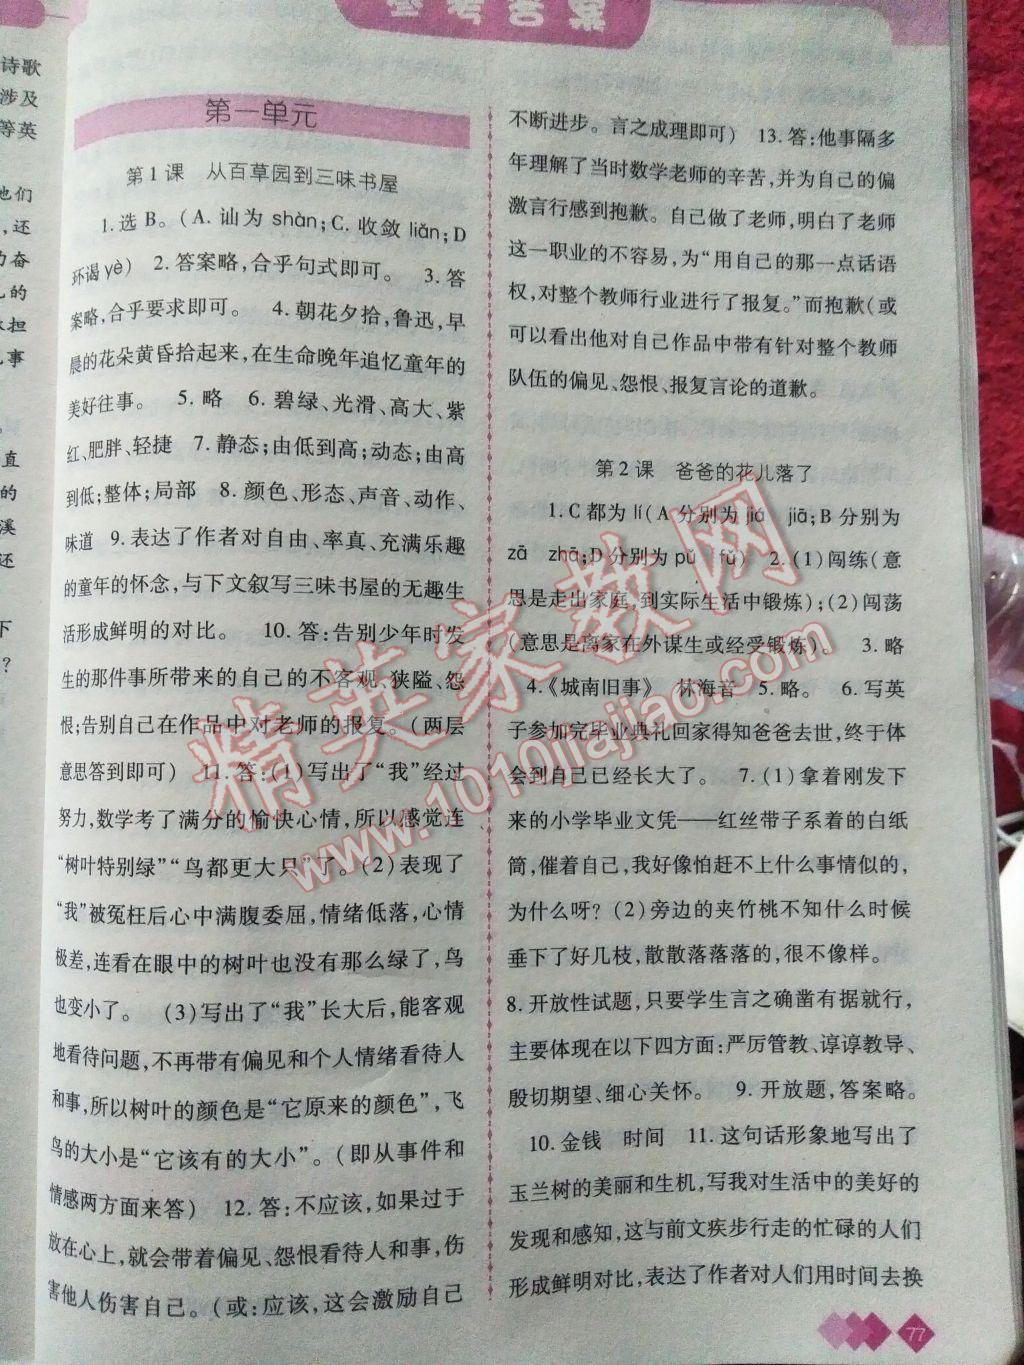 参考答案
诗歌
涉及
等英
他们
,还
力奋
儿的
担
事
。
直
的
溪
还
下
?
第一单元
第1课 从百草园到三味书屋
1.选B。(A.讪为shàn;C.收敛liǎn;D
环谒yè) 2.答案略,合乎句式即可。 3.答
案略,合乎要求即可。 4.朝花夕拾,鲁迅,早
晨的花朵黄昏拾起来,在生命晚年追忆童年的
美好往事。 5.略 6.碧绿、光滑、高大、紫
红、肥胖、轻捷 7.静态;由低到高;动态;由高
到低;整体;局部 8.颜色、形态、声音、动作、
味道 9.表达了作者对自由、率真、充满乐趣
的童年的怀念,与下文叙写三味书屋的无趣生
活形成鲜明的对比。 10.答:告别少年时发
生的那件事所带来的自己的不客观、狭隘、怨
恨;告别自己在作品中对老师的报复。(两层
意思答到即可) 11.答:(1)写出了“我”经过
努力,数学考了满分的愉快心情,所以感觉连
“树叶特别绿”“鸟都更大只”了。(2)表现了
“我”被冤枉后心中满腹委屈,情绪低落,心情
极差,连看在眼中的树叶也没有那么绿了,鸟
也变小了。 (3)写出了“我”长大后,能客观
地看待问题,不再带有偏见和个人情绪看待人
和事,所以树叶的颜色是“它原来的颜色”,飞
鸟的大小是“它该有的大小”。(即从事件和
情感两方面来答) 12.答:不应该,如果过于
放在心上,就会带着偏见、怨恨看待人和事,伤
害他人伤害自己。(或:应该,这会激励自己
不断进步。言之成理即可) 13.答:他事隔多
年理解了当时数学老师的辛苦,并为自己的偏
激言行感到抱歉。自己做了老师,明白了老师
这一职业的不容易,为“用自己的那一点话语
权,对整个教师行业进行了报复。”而抱歉(或
可以看出他对自己作品中带有针对整个教师
队伍的偏见、怨恨、报复言论的道歉。
第2课 爸爸的花儿落了
1.C都为lí(A分别为jiá jiā;B分别为
zā zhā;D分别为pǔ fǔ) 2.(1)闯练(意
思是走出家庭,到实际生活中锻炼);(2)闯荡
(意思是离家在外谋生或经受锻炼)。 3.略
4.《城南旧事》 林海音 5.略。 6.写英
子参加完毕业典礼回家得知爸爸去世,终于体
会到自己已经长大了。 7.(1)拿着刚发下
来的小学毕业文凭——红丝带子系着的白纸
筒,催着自己,我好像怕赶不上什么事情似的,
为什么呀?(2)旁边的夹竹桃不知什么时候
垂下了好几枝,散散落落落的,很不像样。
8.开放性试题,只要学生言之确凿有据就行,
主要体现在以下四方面:严厉管教、谆谆教导、
殷切期望、细心关怀。 9.开放题,答案略。
10.金钱 时间 11.这句话形象地写出了
玉兰树的美丽和生机,写我对生活中的美好的
发现和感知,这与前文疾步行走的忙碌的人们
形成鲜明对比,表达了作者对人们用时间去换
77
精英家教网
www.1010jiajiao.com